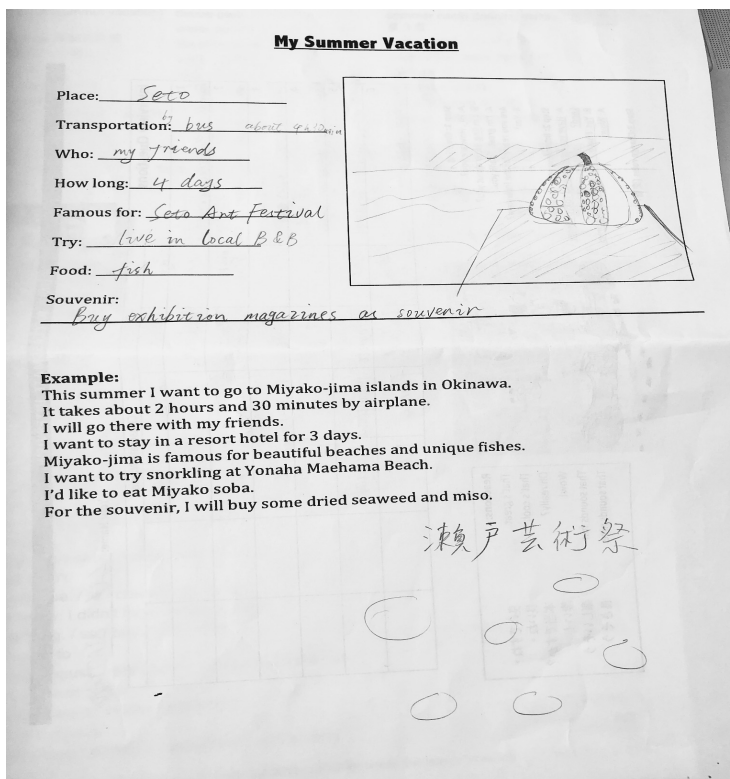 My Summer Vacation
Place: Seto
Transportation: by bus about 9h 12min
Who: my friends
How long: 4 days
Famous for: Seto Art Festival
Try: live in local B & B
Food: fish
Souvenir:
Buy exhibition magazines as souvenir
Example:
This summer I want to go to Miyako-jima islands in Okinawa.
It takes about 2 hours and 30 minutes by airplane.
I will go there with my friends.
I want to stay in a resort hotel for 3 days.
Miyako-jima is famous for beautiful beaches and unique fishes.
I want to try snorkling at Yonaha Maehama Beach.
I'd like to eat Miyako soba.
For the souvenir, I will buy some dried seaweed and miso.
瀬戸芸術祭